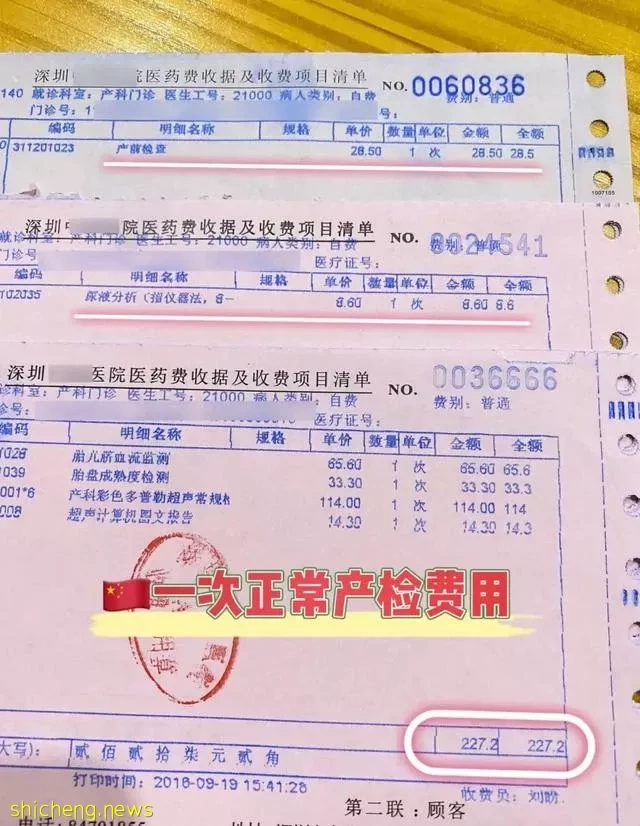 深圳 院医药费收据及收费项目清单 NO. 0060836
140 就诊科室：产科门诊 医生工号：21000 病人类别：自费 费别：普通
门诊号：1 号：
编码 明细名称 规格 单价 数量 单位 金额 全额
311201023 产前检查 28.50 1 次 28.50 28.5
1007105
深圳 院医药费收据及收费项目清单 NO. 0024541
就诊科室：产科门诊 医生工号：21000 病人类别：自费 费别：普通
门诊号 医疗证号：
编码 明细名称 规格 单价 数量 单位 金额 全额
102035 尿液分析（指仪器法，8— 8.60 1 次 8.60 8.6
深圳 医院医药费收据及收费项目清单 NO. 0036666
诊科室：产科门诊 医生工号：21000 病人类别：自费 费别：普通
诊号： 医疗证号：
编码 明细名称 规格 单价 数量 单位 金额 全额
1028 胎儿脐血流监测 65.60 1 次 65.60 65.6
1039 胎盘成熟度检测 33.30 1 次 33.30 33.3
001*6 产科彩色多普勒超声常规检 114.00 1 次 114.00 114
008 超声计算机图文报告 14.30 1 次 14.30 14.3
🇨🇳一次正常产检费用
227.2 227.2
大写）： 贰佰贰拾柒元贰角
打印时间：2016-09-19 15:41:26 收费员：刘盼
shicheng.news
第二联：顾客